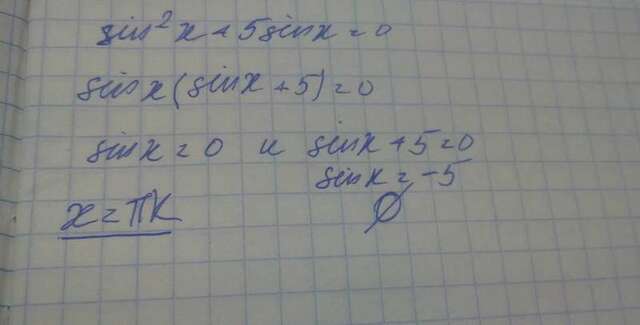 sin²x + 5sinx = 0
sinx(sinx + 5) = 0
sinx = 0 и sinx + 5 = 0
sinx = -5
x = πk ∅